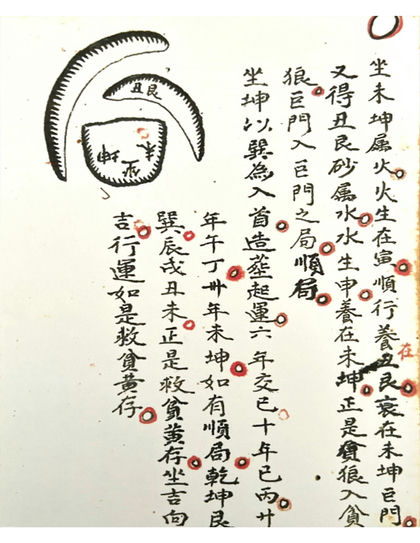 坐未坤属火火生在寅順行養在丑艮衰在未坤巨門
又得丑艮砂属水水生申養在未坤正是貪狼入貪
狼巨門入巨門之局順局
坐坤以巽為入首造葬起運六年交巳十年巳丙廿
年午丁卅年未坤如有順局乾坤艮
巽辰戌丑未正是救貧黄存坐吉向
吉行運如是救貧黄存
丑艮
坤坐未